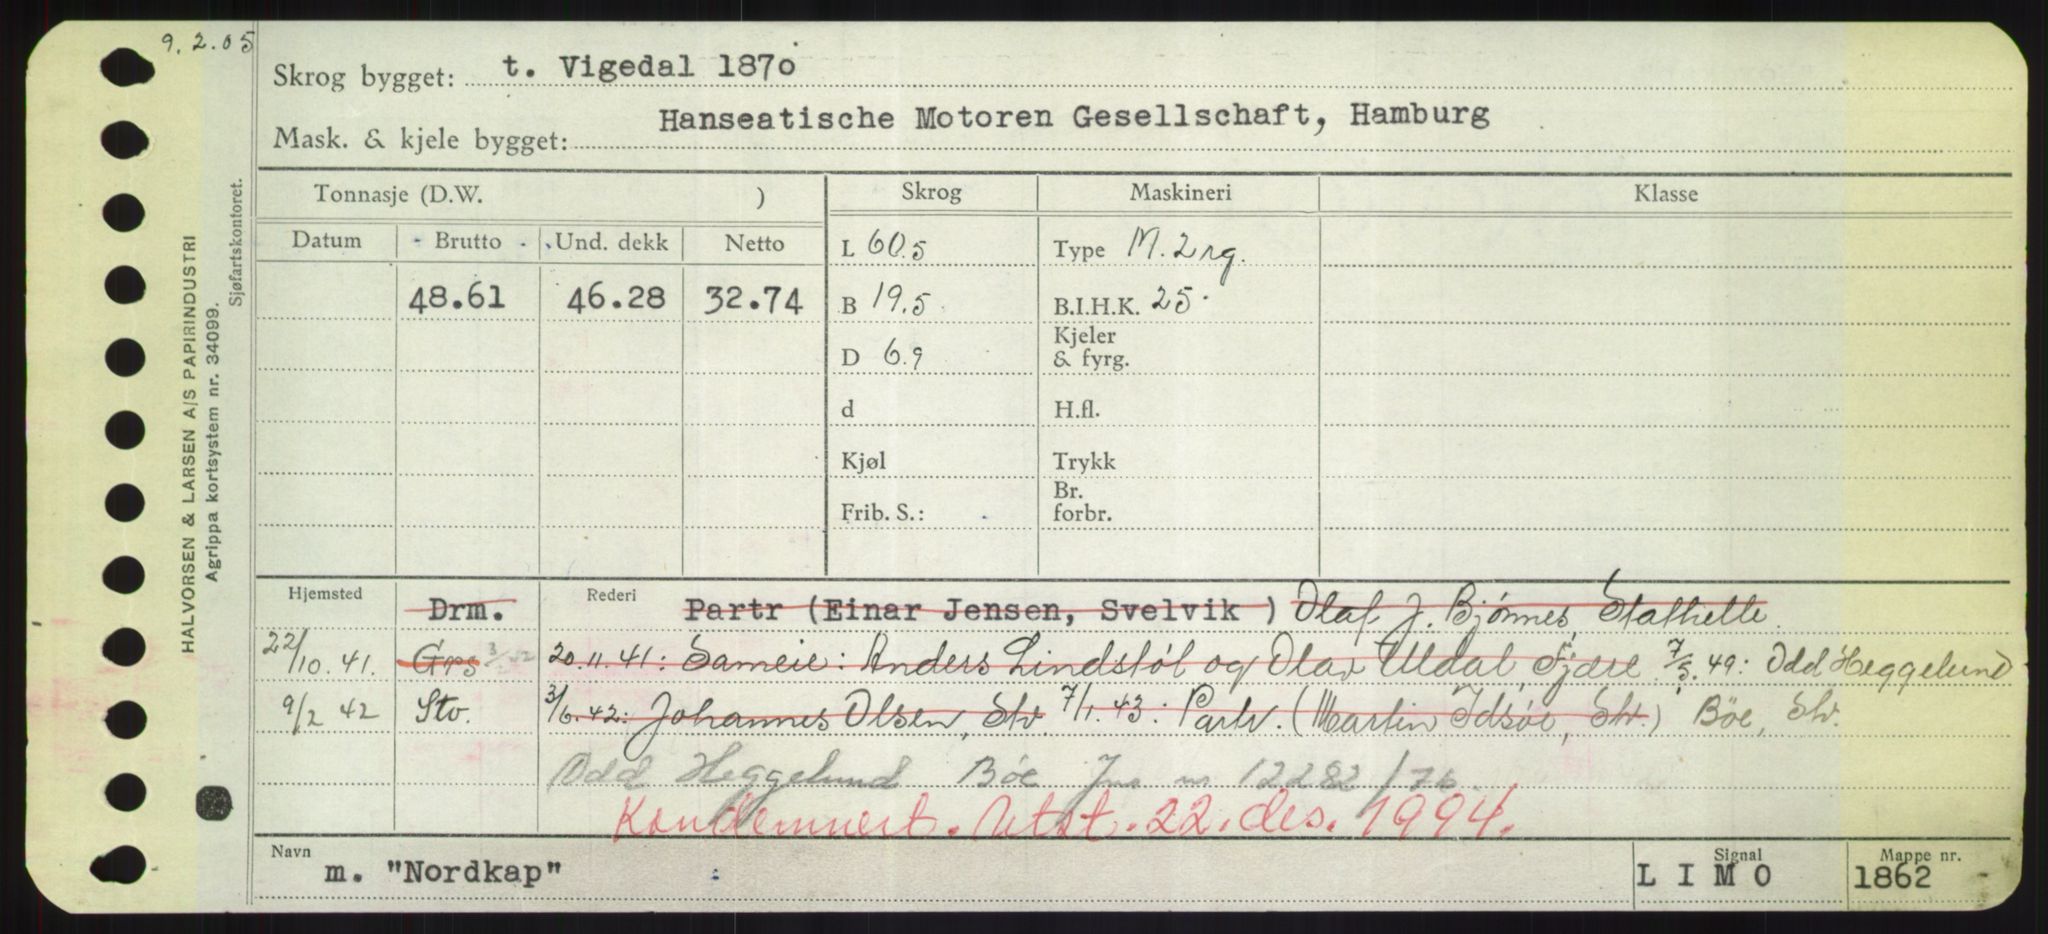 9.2.05
Skrog bygget: t. Vigedal 1870
Mask. & kjele bygget: Hanseatische Motoren Gesellschaft, Hamburg
Tonnasje (D.W. ) Skrog Maskineri Klasse
Datum Brutto Und. dekk Netto L 60.5 Type M. 2 rg.
48.61 46.28 32.74 B 19.5 B.I.H.K. 25
D 6.9 Kjeler & fyrg.
d H.fl.
Kjøl Trykk
Frib. S.: Br. forbr.
Hjemsted Drm. Rederi Partr (Einar Jensen, Svelvik ) Olaf J. Bjönnes, Stathelle.
22/10.41. Grs 3/ 20.11.41: Sameie: Anders Lindstøl og Olav Uldal, Fjære. 7/5.49: Odd Heggelund
9/2 42 Stv. 3/6.42: Johannes Olsen, Stv. 7/1.43: Partr. (Martin Idsøe, Stv.) Böe, Stv.
Odd Heggelund Böe Jnr nr 12282/76.
Kondemnert. Utst. 22. des. 1994.
Navn m. "Nordkap" Signal LIMO Mappe nr. 1862
HALVORSEN & LARSEN A/S PAPIRINDUSTRI
Agrippa kortsystem nr. 34099.
Sjøfartskontoret.